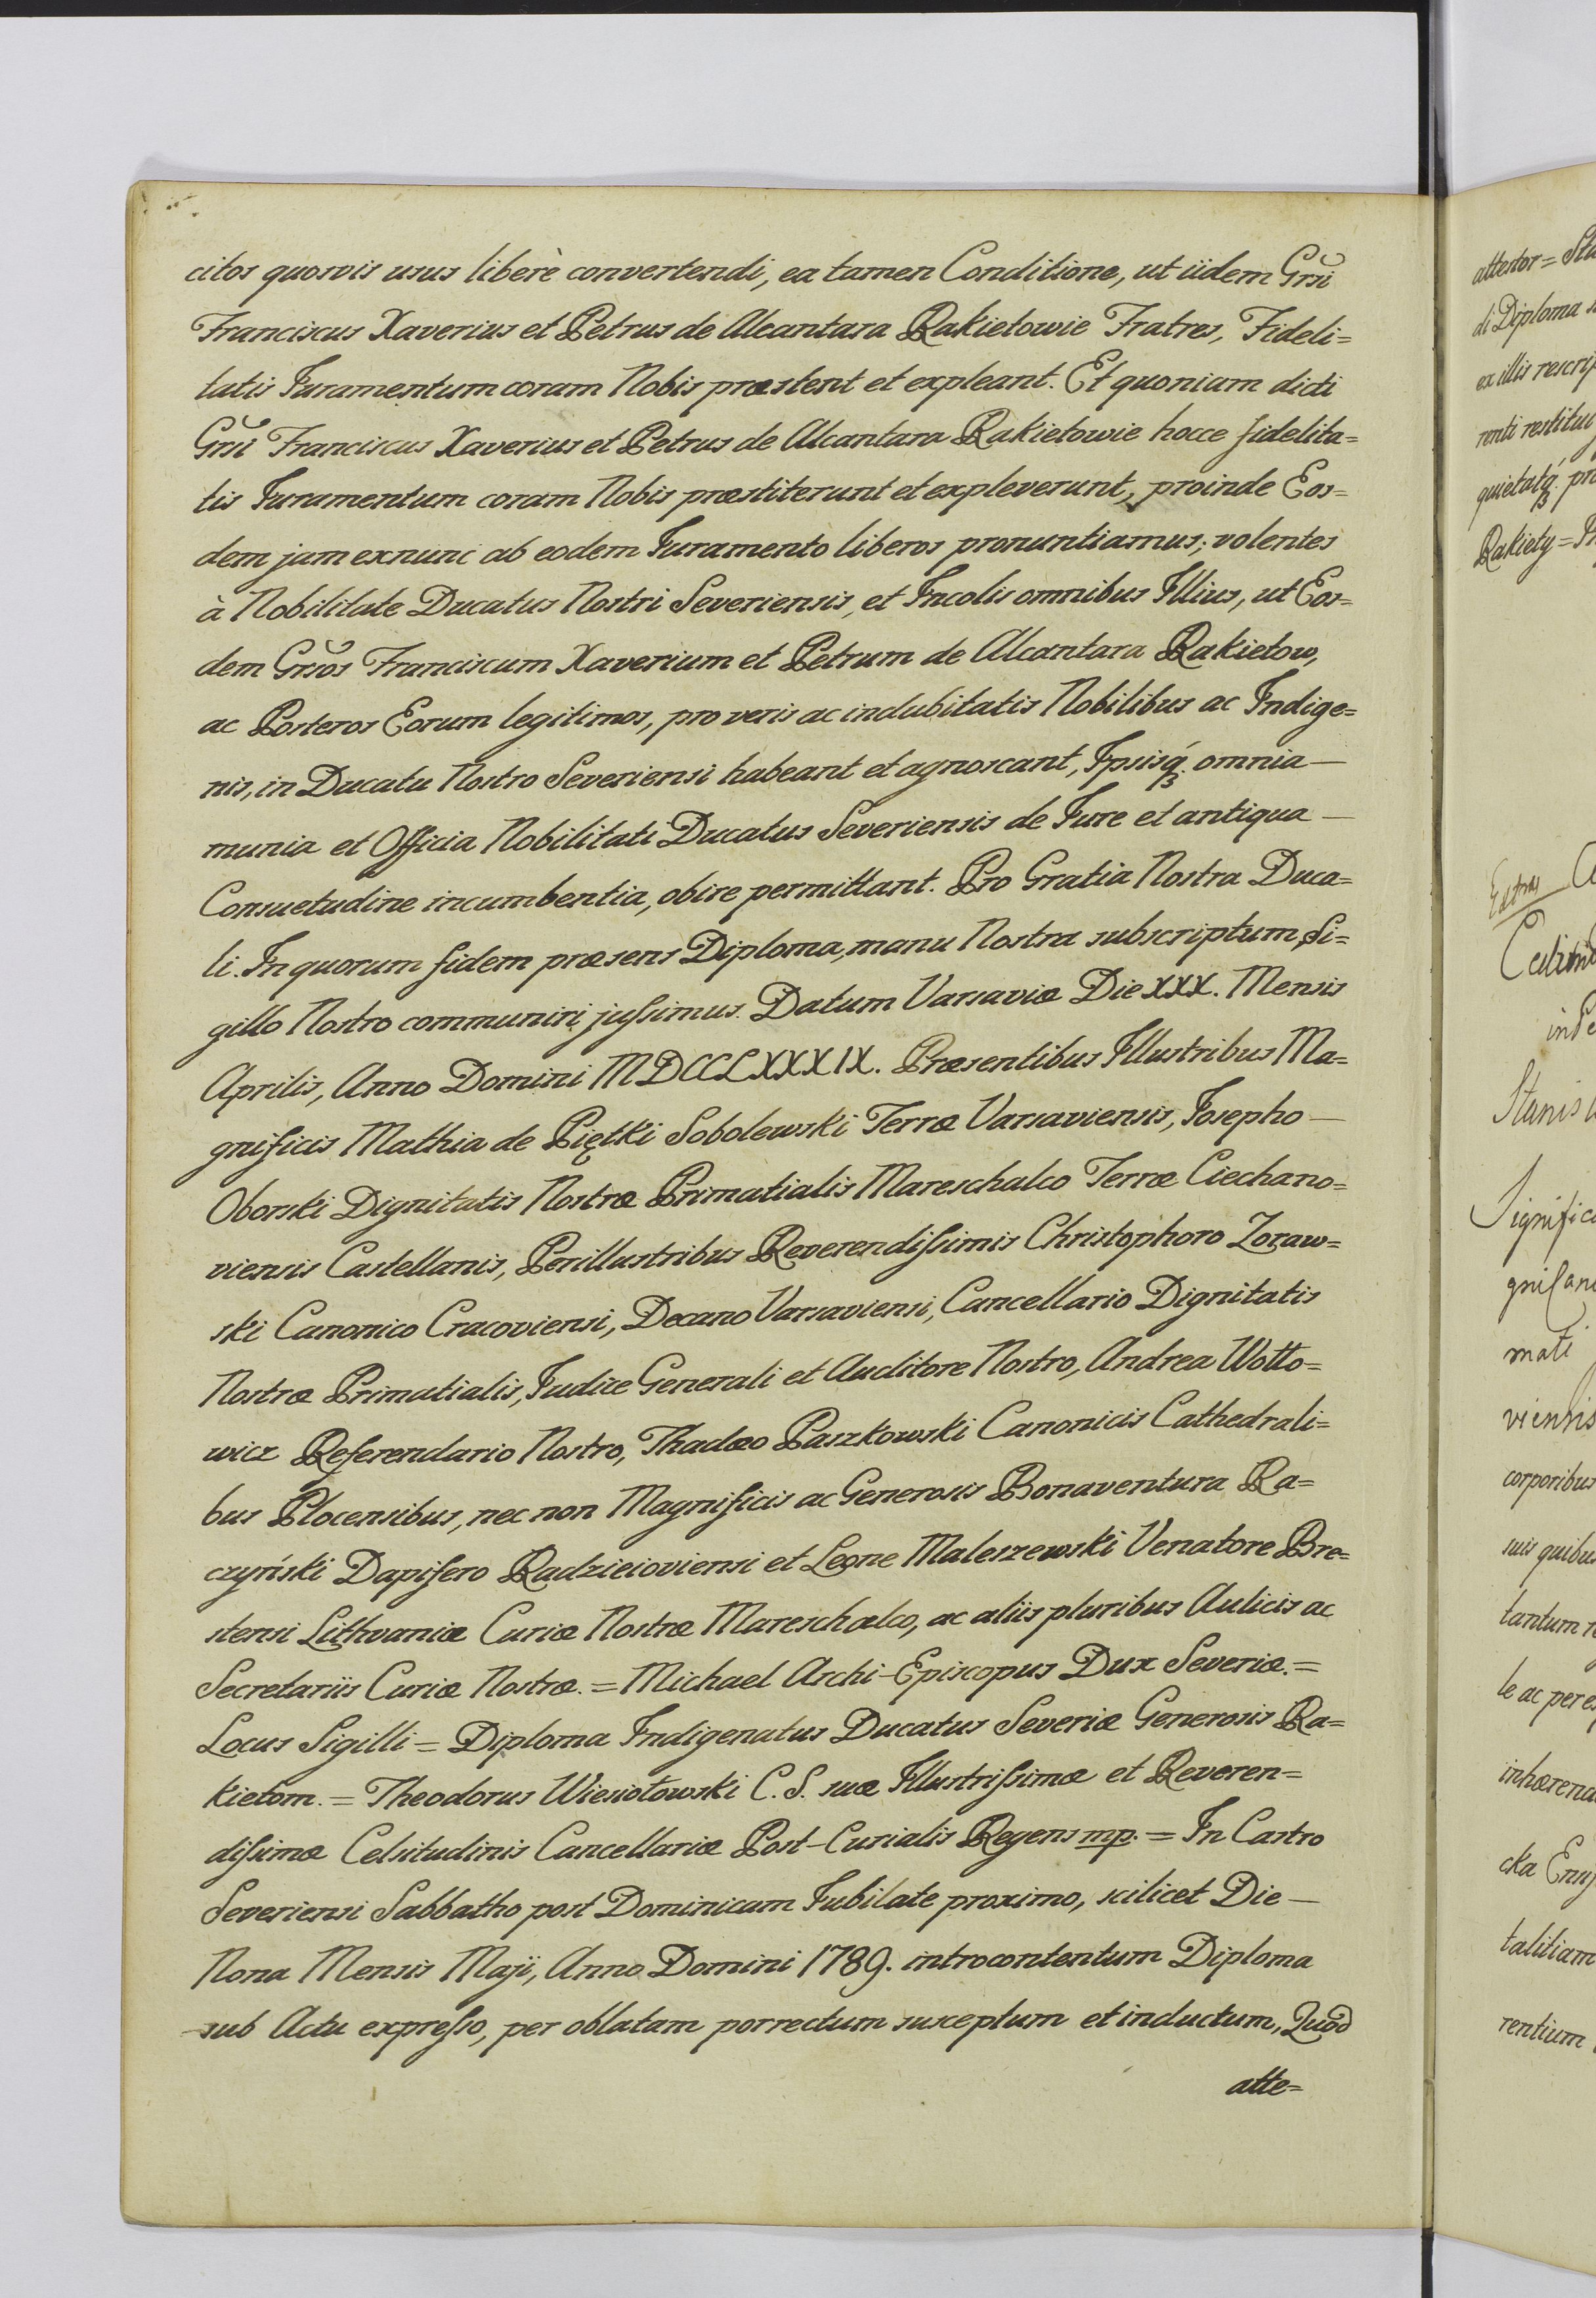 citos quosvis usus liberè convertendi, ea tamen Conditione, ut iidem Grsi
Franciscus Xaverius et Petrus de Alcantara Rakietowie Fratres, Fideli=
tatis Juramentum coram Nobis præstent et expleant. Et quoniam dicti
Grsi Franciscus Xaverius et Petrus de Alcantara Rakietowie hocce fidelita=
tis Juramentum coram Nobis præstiterunt et expleverunt, proinde Eos=
dem jam exnunc ab eodem Juramento liberos pronuntiamus; volentes
à Nobilitate Ducatus Nostri Severiensis, et Incolis omnibus Illius, ut Eos=
dem Grsos Franciscum Xaverium et Petrum de Alcantara Rakietow,
ac Posteros Eorum legitimos, pro veris ac indubitatis Nobilibus ac Indige=
nis, in Ducatu Nostro Severiensi habeant et agnoscant, Ipsisq́ꝫ omnia —
munia et Officia Nobilitati Ducatus Severiensis de Jure et antiqua —
Consuetudine incumbentia, obire permittant. Pro Gratia Nostra Duca=
li. In quorum fidem præsens Diploma, manu Nostra subscriptum, Si=
gillo Nostro communiri jussimus. Datum Varsaviæ Die XXX. Mensis
Aprilis, Anno Domini MDCCLXXXIX. Præsentibus Illustribus Ma=
gnificis Mathia de Piętki Sobolewski Terræ Varsaviensis, Josepho —
Oborski Dignitatis Nostræ Primatialis Mareschalco Terræ Ciechano=
viensis Castellanis, Perillustribus Reverendissimis Christophoro Zoraw=
ski Canonico Cracoviensi, Decano Varsaviensi, Cancellario Dignitatis
Nostræ Primatialis, Judice Generali et Auditore Nostro, Andrea Wołło=
wicz Referendario Nostro, Thadæo Paszkowski Canonicis Cathedrali=
bus Plocensibus, nec non Magnificis ac Generosis Bonaventura Ra=
czyński Dapifero Radzieioviensi et Leone Maleszewski Venatore Bre=
stensi Lithvaniæ Curiæ Nostræ Mareschalco, ac aliis pluribus Aulicis ac
Secretariis Curiæ Nostræ. = Michael Archi-Episcopus Dux Severiæ. =
Locus Sigilli = Diploma Indigenatus Ducatus Severiæ Generosis Ra=
kietom. = Theodorus Wiesiołowski C. S. suæ Illustrissimæ et Reveren=
dissimæ Celsitudinis Cancellariæ Post-Curialis Regens mp. = In Castro
Severiensi Sabbatho post Dominicam Jubilate proximo, scilicet Die —
Nona Mensis Maji, Anno Domini 1789. introcontentum Diploma
sub Actu expresso, per oblatam porrectum susceptum et inductum, Quod
atte=
attestor =
di Diploma
ex illis
renti
quietatq́ꝫ
Rakiety =
mati
viensis
corporibus
suis quibus
tantum
le ac
cka
talitiam
rentium